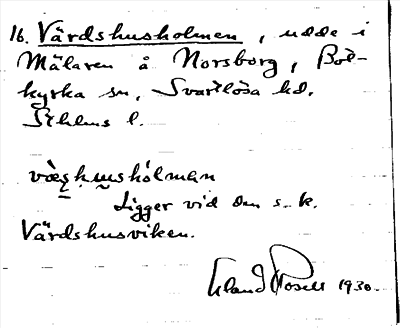 16. Värdshusholmen, udde i
Mälaren å Norsborg, Bot-
kyrka sn, Svartlösa hd.
Sthlms l.
Ligger vid den s.k.
Värdshusviken.
Erland Rosell 1930.